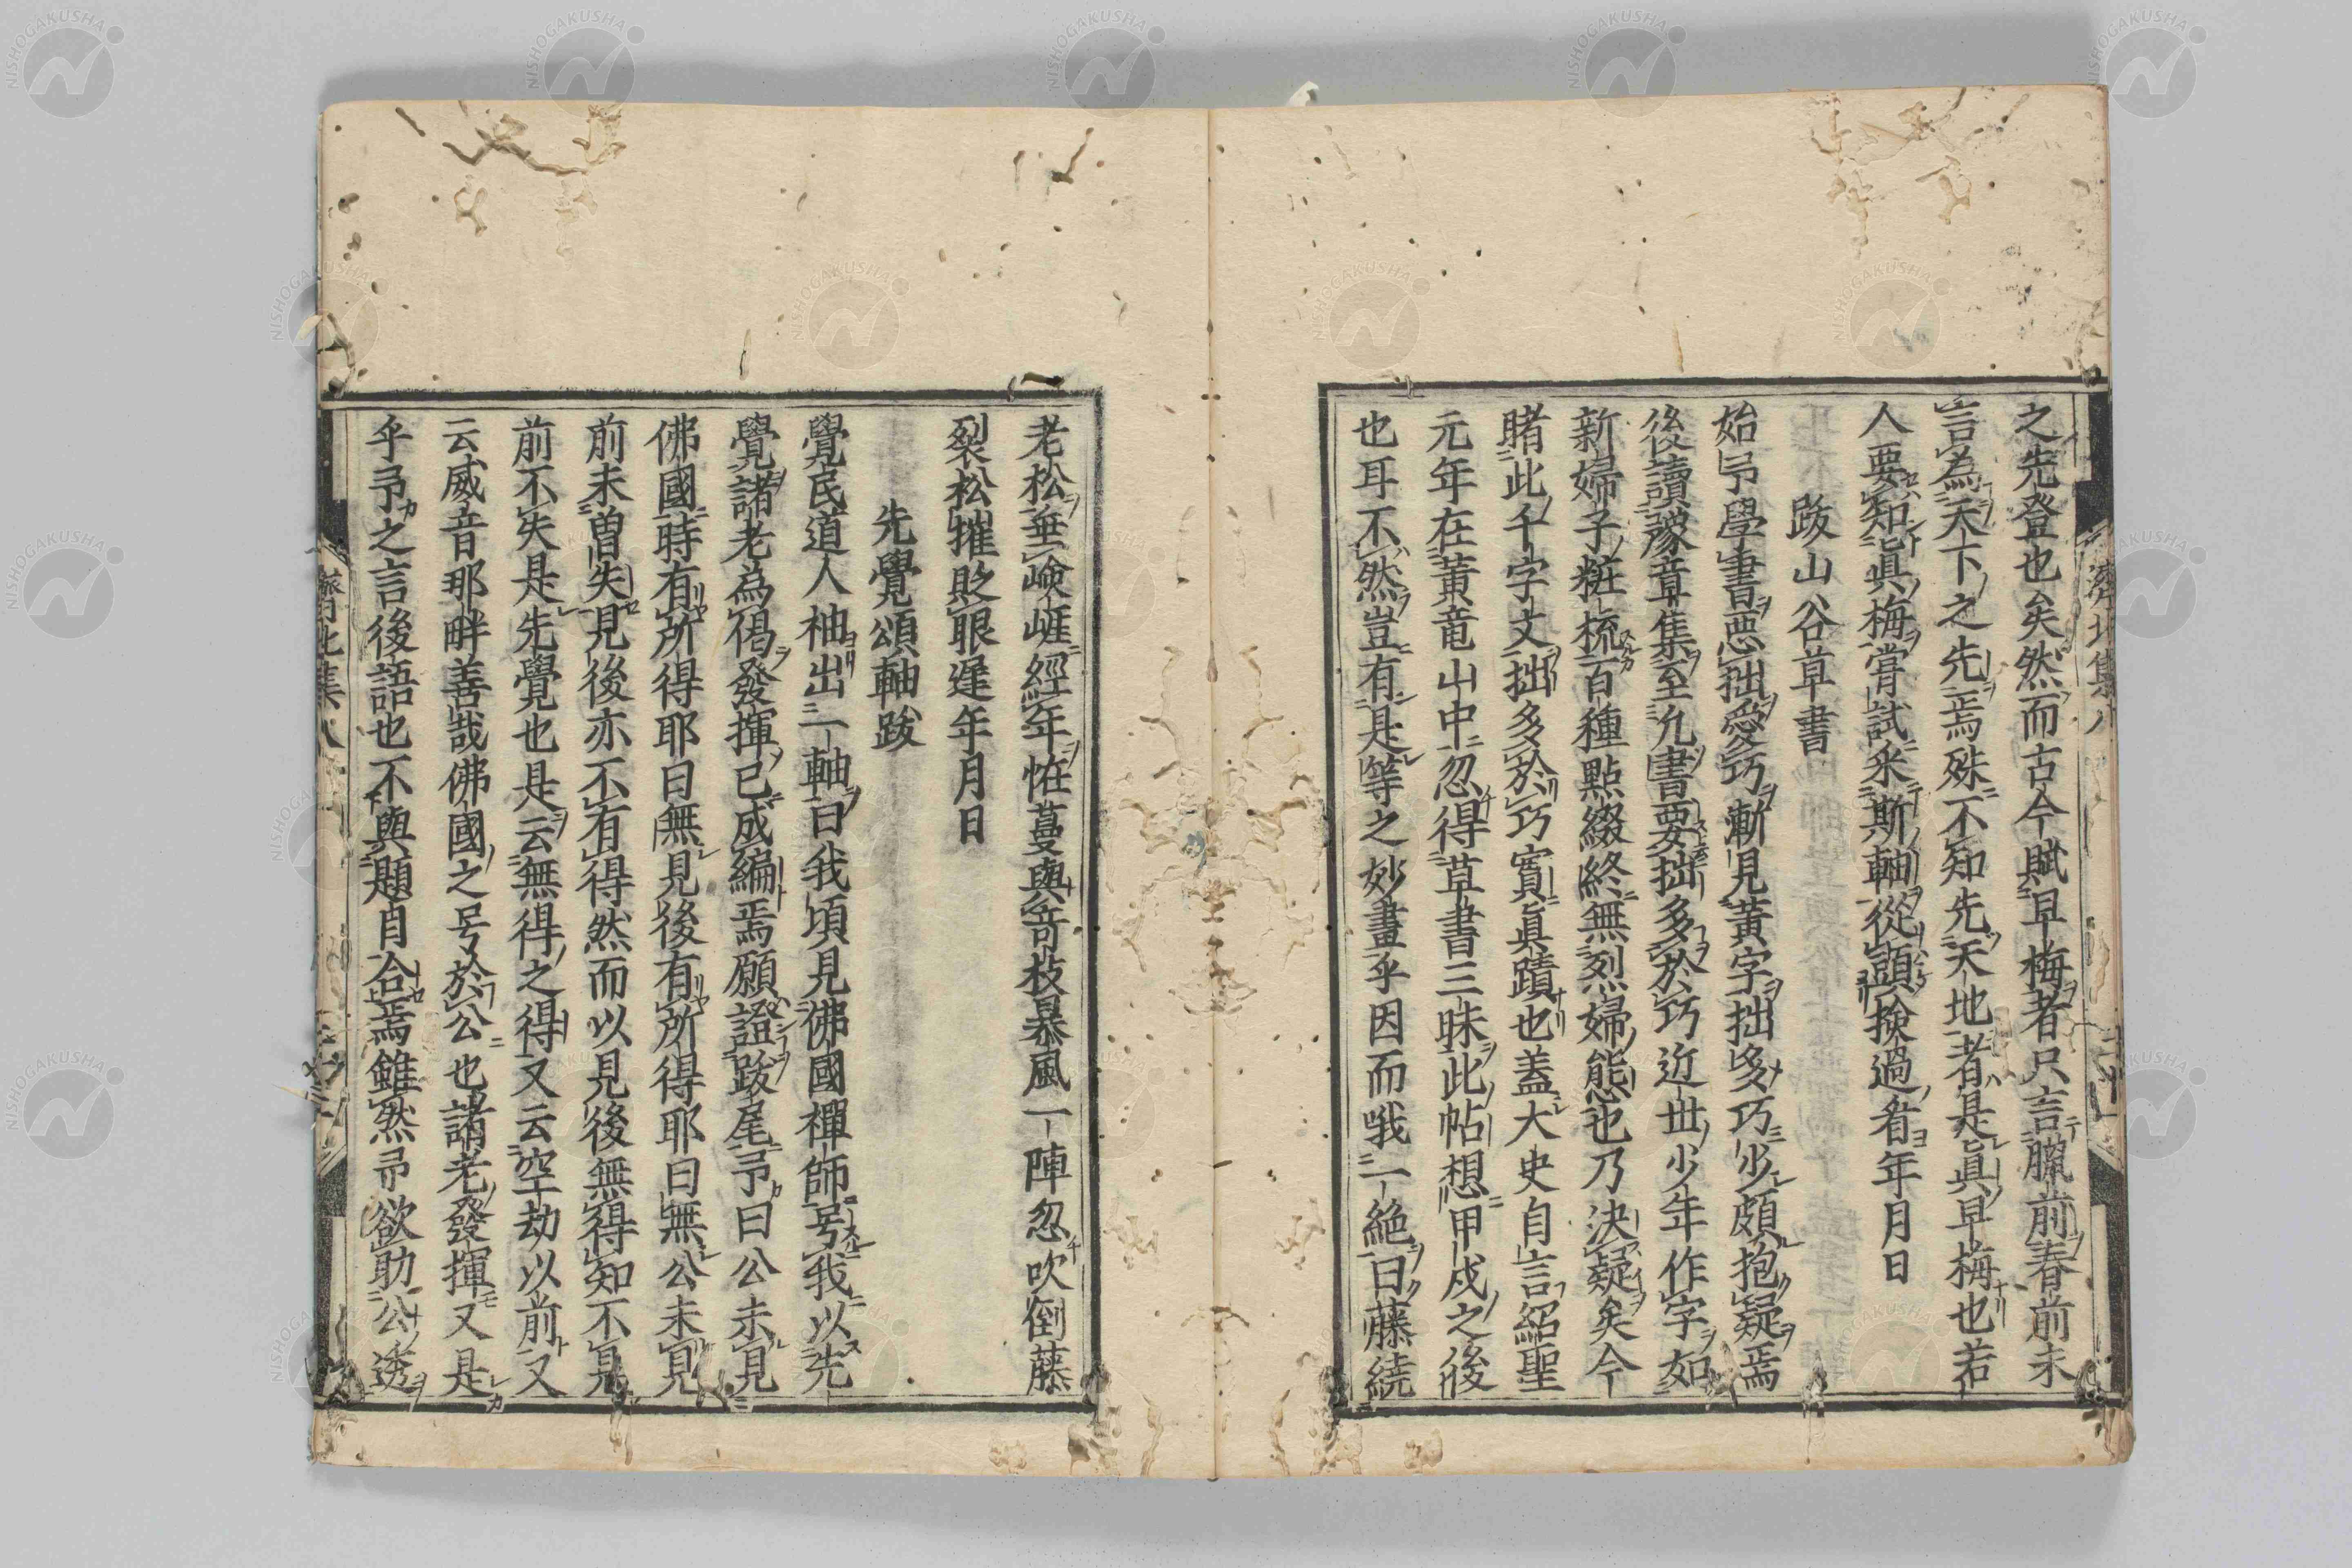 之先登也矣然而古今賦早梅者只言臘前春前未
言為天下之先焉殊不知先天地者是眞早梅也若
人要知眞梅嘗試釆斯軸從頭撿過看年月日
跋山谷草書
始予學書惡拙愛巧漸見黃字拙多巧少頗抱疑焉
後讀豫章集至九書要拙多於巧近世少年作字如
新婦子粧梳百種點綴終無烈婦態也乃決疑矣今
睹此千字文拙多於巧實眞蹟也蓋大史自言紹聖
元年在黃竜山中忽得草書三昧此帖想甲戌之後
也耳不然豈有是等之妙畫乎因而哦一絶曰藤繞
老松垂嶮崕經年恠蔓與奇枝暴風一陣忽吹倒藤
裂松摧敗眼遅年月日
先覺頌軸跋
覺民道人袖出一軸曰我頃見佛國禪師号我以先
覺諸老為偈發揮已成編焉願證跋尾予曰公未見
佛國時有所得耶曰無見後有所得耶曰無公未見
前未曽失見後亦不有得然而以見後無得知不見
前不失是先覺也是云無得之得又云空劫以前又
云威音那畔善哉佛國之号於公也諸老發揮又是
乎予之言後語也不與題目合焉雖然予欲助公透
濟北集八
濟北集八